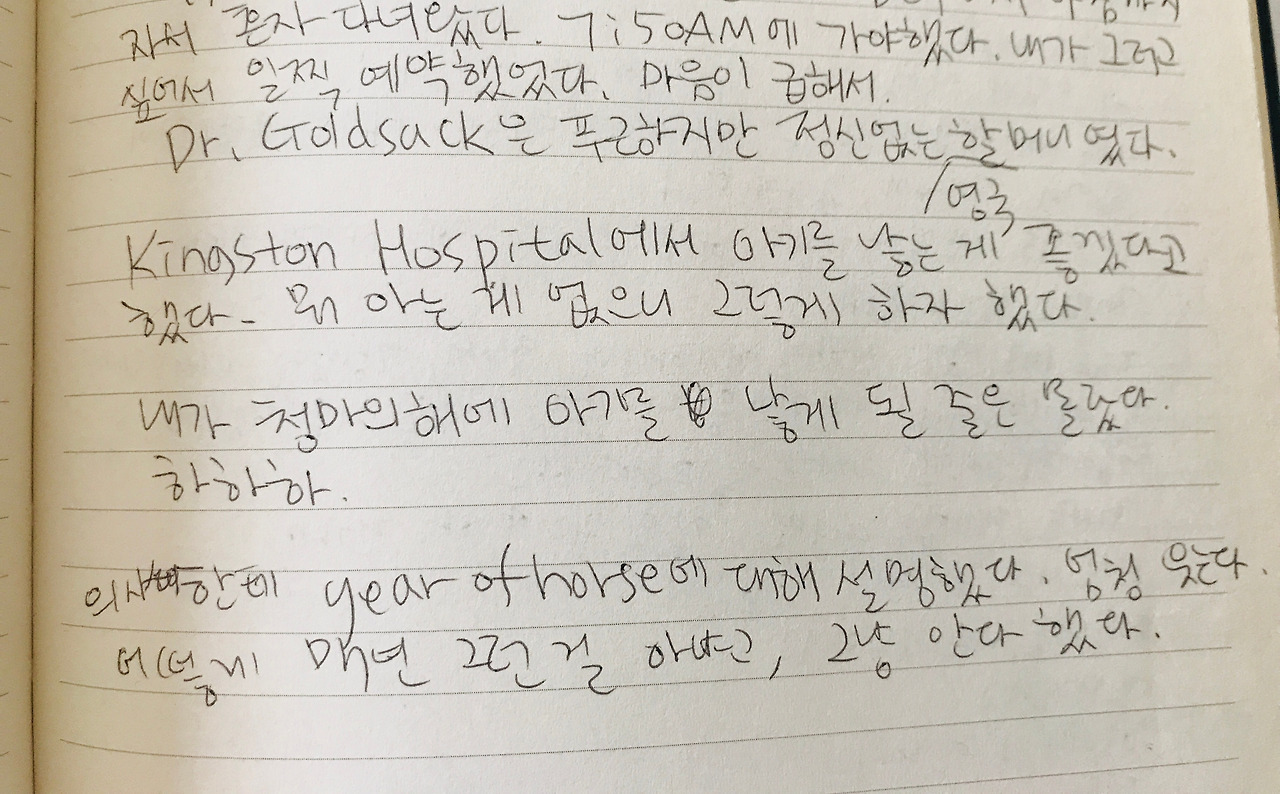 자서 혼자 다녀왔다. 7:50AM에 가야했다. 내가 그러고
싶어서 일찍 예약했었다. 마음이 급해서.
Dr. Goldsack은 푸근하지만 정신없는 할머니였다.
/영국
Kingston Hospital에서 아기를 낳는 게 좋겠다고
했다. 뭐 아는 게 없으니 그렇게 하자 했다.
내가 청마의해에 아기를 낳게 될 줄은 몰랐다.
하하하.
의사한테 year of horse에 대해 설명했다. 엄청 웃는다.
어떻게 매년 그런 걸 아냐고, 그냥 안다 했다.